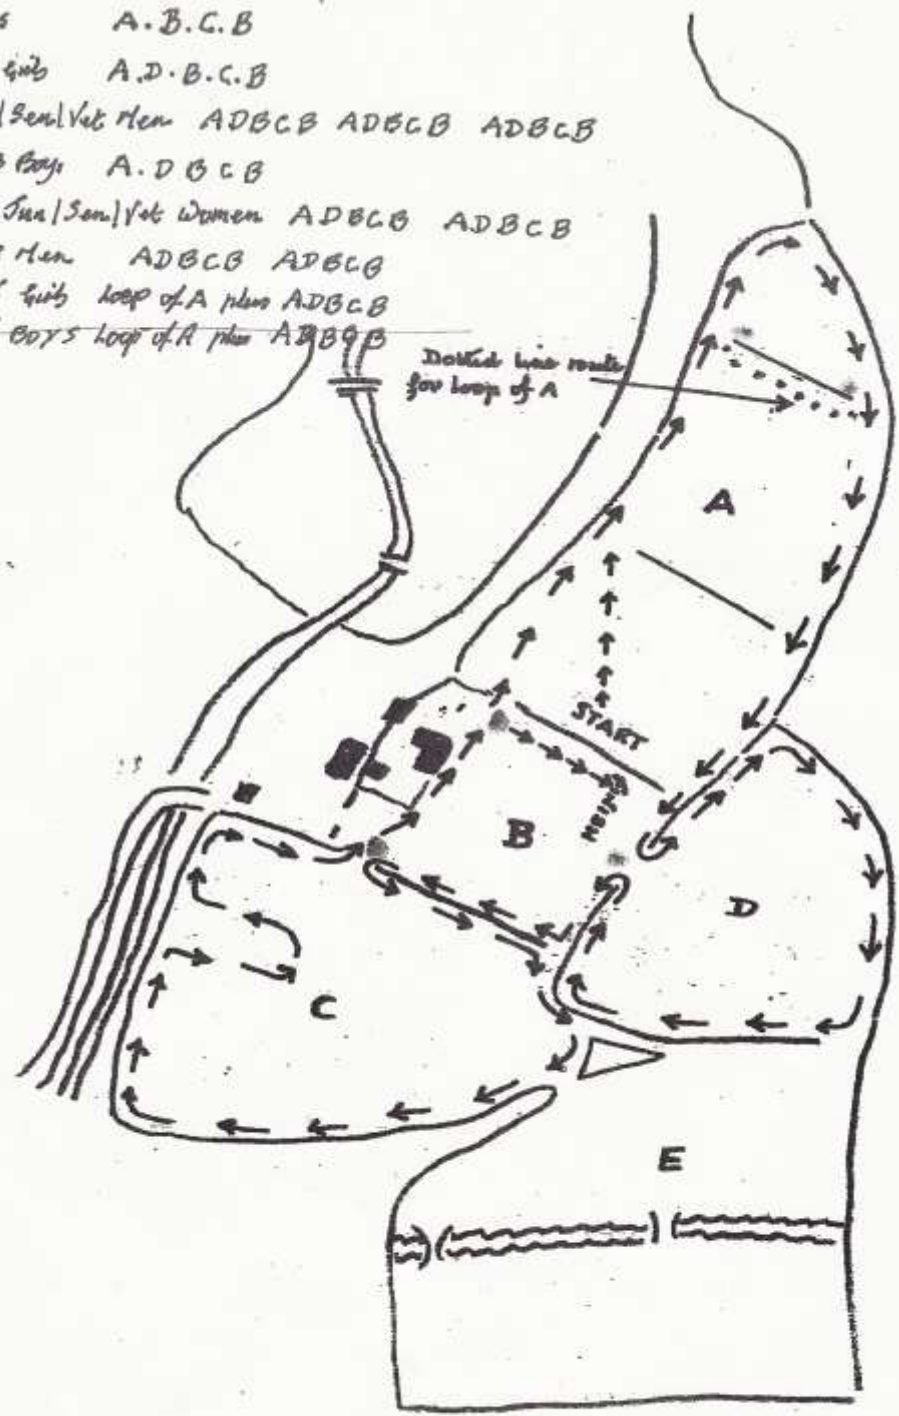 A.B.C.B
Girls A.D.B.C.B
Sen/Vet Men ADBCB ADBCB ADBCB
Boys A.DBCB
Jun/Sen/Vet Women ADBCB ADBCB
Men ADBCB ADBCB
Girls Loop of A plus ADBCB
BOYS Loop of A plus ADBCB
Dotted line route
for loop of A
A
START
FINISH
B
D
C
E